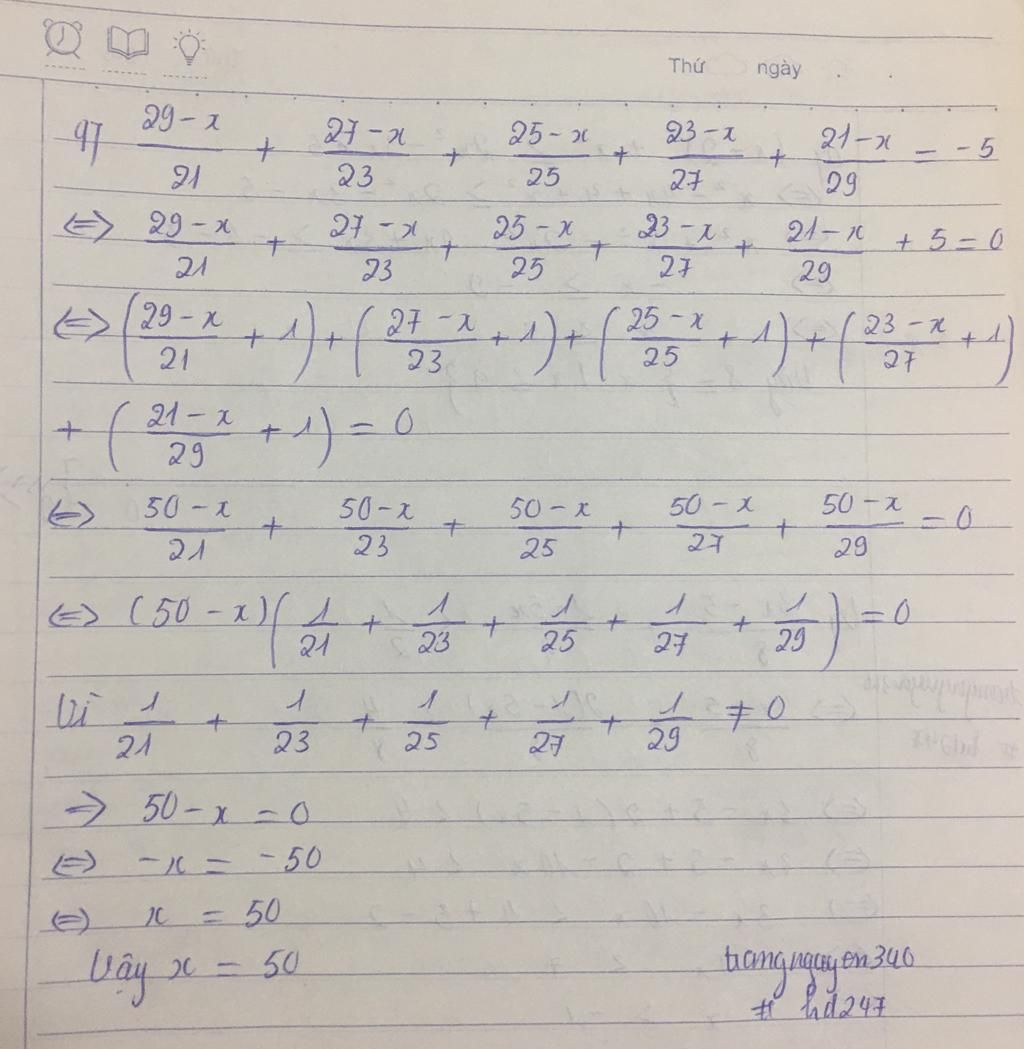 Thứ ngày
9) (29 - x)/21 + (27 - x)/23 + (25 - x)/25 + (23 - x)/27 + (21 - x)/29 = -5
⇔ (29 - x)/21 + (27 - x)/23 + (25 - x)/25 + (23 - x)/27 + (21 - x)/29 + 5 = 0
⇔ ((29 - x)/21 + 1) + ((27 - x)/23 + 1) + ((25 - x)/25 + 1) + ((23 - x)/27 + 1)
+ ((21 - x)/29 + 1) = 0
⇔ (50 - x)/21 + (50 - x)/23 + (50 - x)/25 + (50 - x)/27 + (50 - x)/29 = 0
⇔ (50 - x)(1/21 + 1/23 + 1/25 + 1/27 + 1/29) = 0
Vì 1/21 + 1/23 + 1/25 + 1/27 + 1/29 ≠ 0
⇒ 50 - x = 0
⇔ -x = -50
⇔ x = 50
Vậy x = 50
trangnguyen340
# hd247